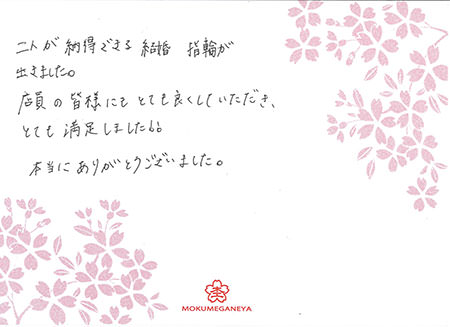 二人が納得できる 結婚 指輪が
出きました。
店員の皆様にもとても良くしていただき、
とても満足しました!!
本当にありがとうございました。
MOKUMEGANEYA